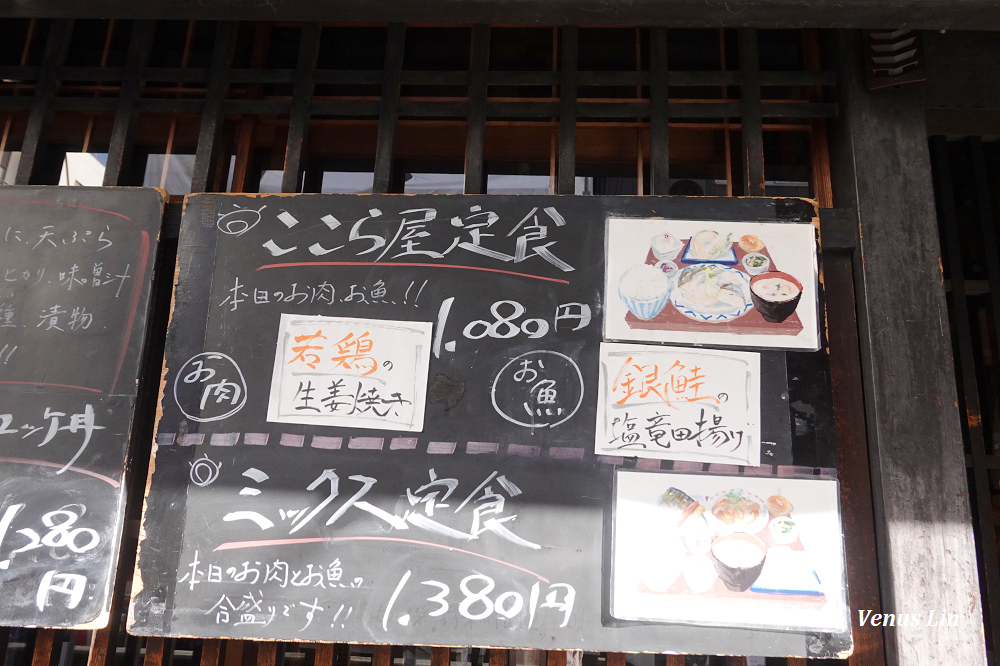 に、天ぷら
ヒカリ、味噌汁
漬物
!!
ユッケ丼
1,280
円
ここら屋定食
本日のお肉、お魚、!!
1,080円
お肉
若鶏の
生姜焼き
お魚
銀鮭の
塩竜田揚げ
ミックス定食
本日のお肉とお魚の
合盛りです!!
1,380円
Venus Lin